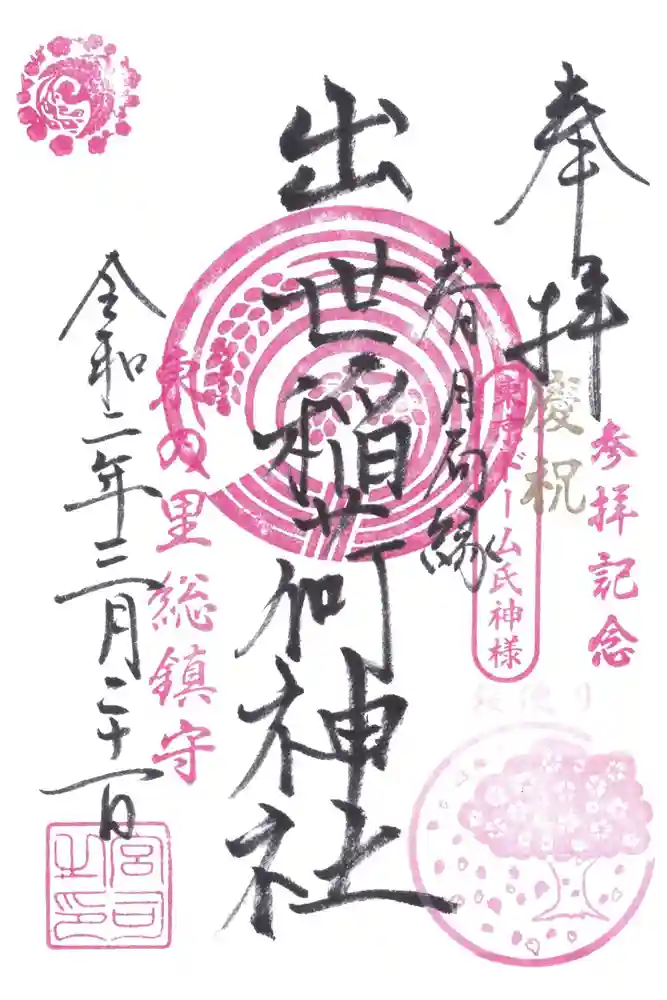 奉拝
慶祝
参拝記念
東京ドーム氏神様
桜便り
春日局縁
出世稲荷神社
東の里総鎮守
令和二年三月二十一日
宮司之印